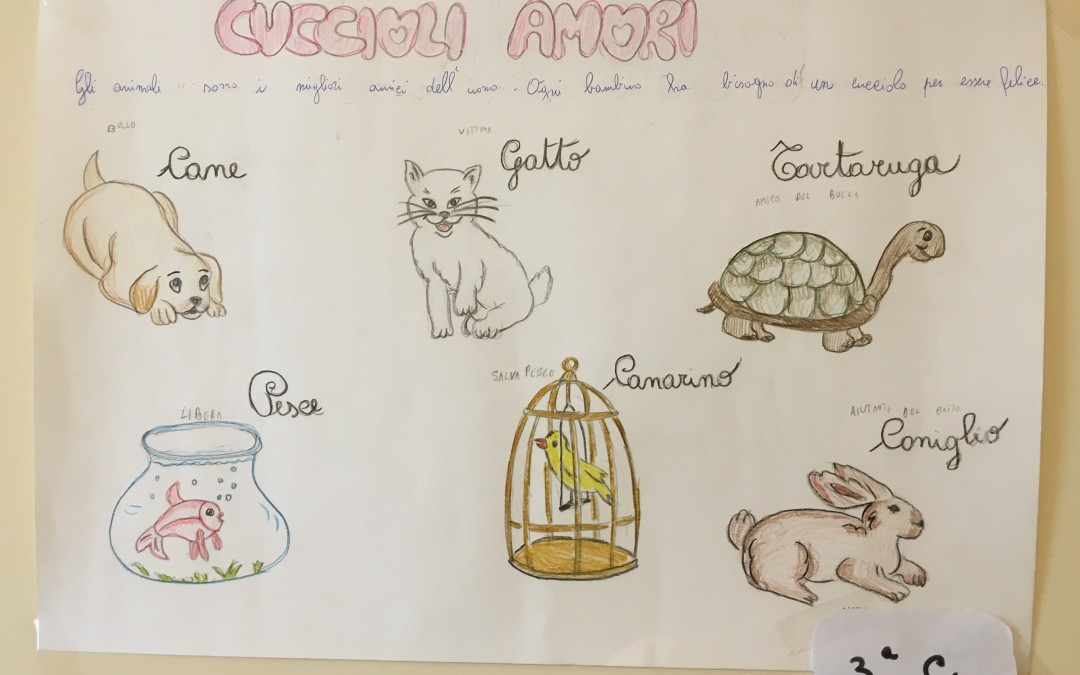 CUCCIOLI AMORI
Gli animali sono i migliori amici dell'uomo. Ogni bambino ha bisogno di un cucciolo per essere felice.
BULLO
Cane
VITTIMA
Gatto
Tartaruga
AMICO DEL
Pesce
LIBERA
SALVA PESCE
Canarino
DEL
Coniglio
3ª C